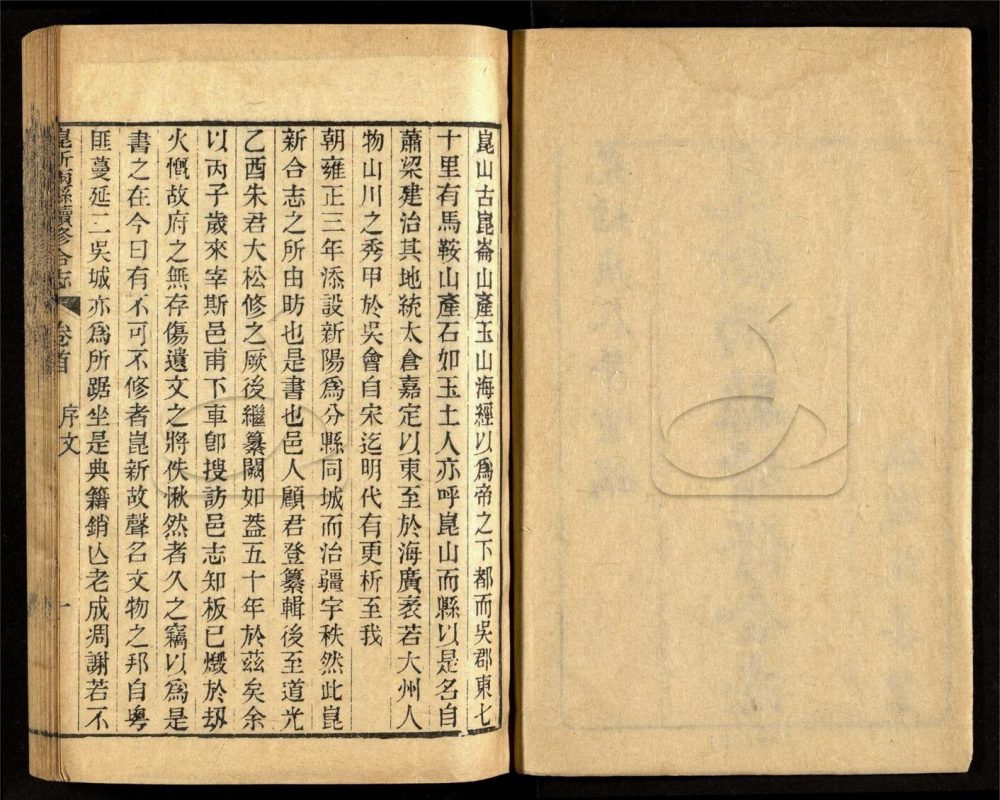 崑山古崑崙山產玉山海經以爲帝之下都而吳郡東七
十里有馬鞍山產石如玉土人亦呼崑山而縣以是名自
蕭梁建治其地統太倉嘉定以東至於海廣袤若大州人
物山川之秀甲於吳會自宋迄明代有更析至我
朝雍正三年添設新陽爲分縣同城而治疆宇秩然此崑
新合志之所由昉也是書也邑人顧君登纂輯後至道光
乙酉朱君大松修之厥後繼纂闕如葢五十年於茲矣余
以丙子歲來宰斯邑甫下車卽搜訪邑志知板已燬於刼
火慨故府之無存傷遺文之將佚愀然者久之竊以爲是
書之在今日有不可不修者崑新故聲名文物之邦自粵
匪蔓延二吳城亦爲所踞坐是典籍銷亾老成凋謝若不
崑新兩縣續修合志 卷首 序文 一